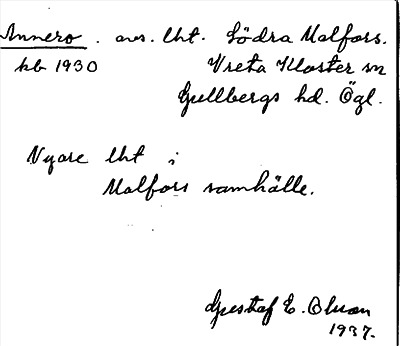 Annero. avs. lht. Södra Malfors.
kb 1930 Vreta Kloster sn
Gullbergs hd. Ögl.
Nyare lht i
Malfors samhälle.
Gustaf E. Olson
1937.